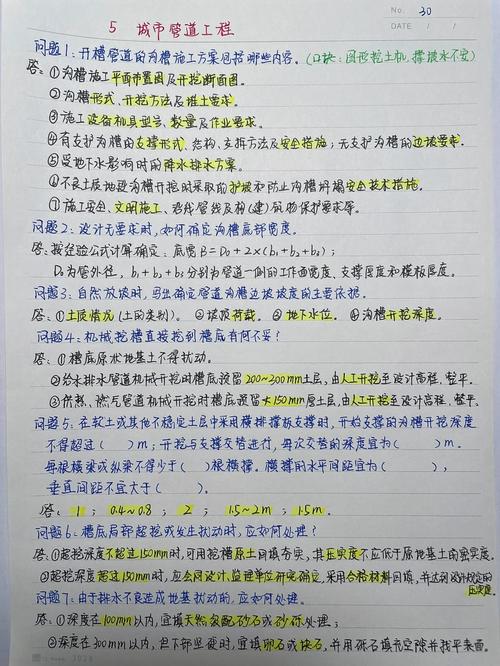 No. 30
DATE / /
5 城市管道工程
问题1:开槽管道的沟槽施工方案包括哪些内容。(口诀:图形挖土机,撑坡水不安)
答:①沟槽施工平面布置图及开挖断面图。
②沟槽形式、开挖方法及堆土要求。
③施工设备机具型号、数量及作业要求。
④有支护沟槽的支撑形式、结构、支拆方法及安全措施;无支护沟槽的边坡要求。
⑤受地下水影响时的降水排水方案。
⑥不良土质地段沟槽开挖时采取的护坡和防止沟槽坍塌安全技术措施。
⑦施工安全、文明施工、沿线管线及构(建)筑物保护要求等。
问题2:设计无要求时,如何确定沟槽底部宽度。
答:按经验公式计算确定:底宽B=D₀+2×(b₁+b₂+b₃);
D₀为管外径,b₁+b₂+b₃分别为管道一侧的工作面宽度、支撑厚度和模板厚度。
问题3:自然放坡时,写出确定管道沟槽边坡坡度的主要依据。
答:①土质情况(土的类别)。②坡顶荷载。③地下水位。④沟槽开挖深度。
问题4:机械挖槽直接挖到槽底有何不妥?
答:①槽底原状地基土不得扰动。
②给水排水管道机械开挖时槽底预留200~300mm土层,由人工开挖至设计高程、整平。
③供热、燃气管道机械开挖时槽底预留大150mm厚土层,由人工开挖至设计高程、整平。
问题5:在软土或其他不稳定土层中采用横排撑板支撑时,开始支撑的沟槽开挖深度
不得超过( )m;开挖与支撑交替进行,每次交替的深度宜为( )m.
每根横梁或纵梁不得少于( )根横撑。横撑的水平间距宜为( ),
垂直间距不宜大于( )。
答: 1 ; 0.4~0.8 ; 2 ; 1.5~2m ; 1.5m.
问题6:槽底局部超挖或发生扰动时,应如何处理?
答:①超挖深度不超过150mm时,可用挖槽原土回填夯实,其压实度不应低于原地基土的密实度。
②超挖深度超过150mm时,应会同设计、监理单位研究确定,采用合格材料回填,并达到设计规定的
压实度
问题7:由于排水不良造成地基扰动的,应如何处理。
答:①深度在100mm以内,宜填天然级配砂石或砂砾处理;
②深度在300mm以内,但下部坚硬时,宜填卵石或块石,并用砾石填充空隙并找平表面。